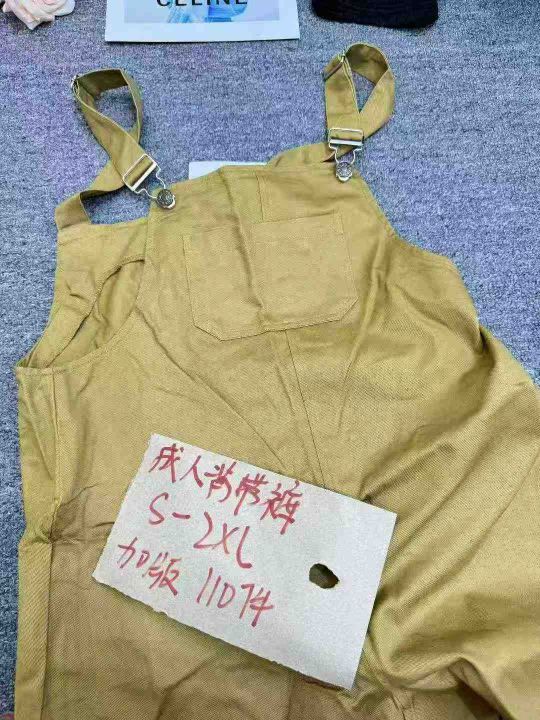 CELINE
成人背带裤
S-2XL
加版 1107件